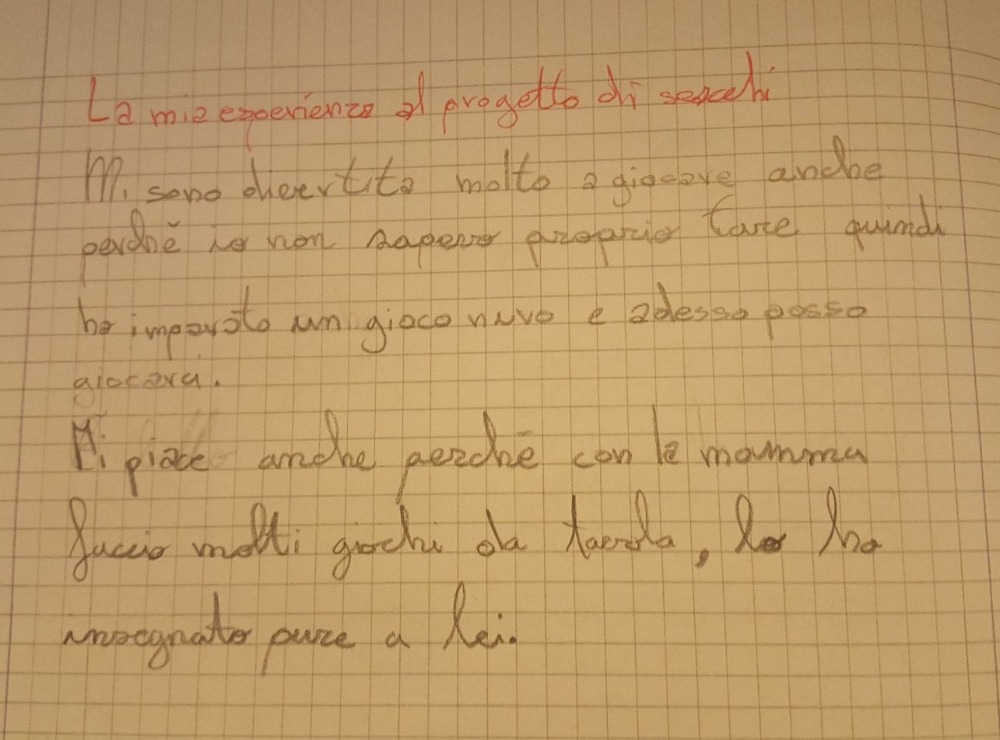 La mia esperienza al progetto di scacchi
Mi sono divertita molto a giocare anche
perchè io non sapevo proprio fare quindi
ho imparato un gioco nuvo e adesso posso
giocarci.
Mi piace anche perchè con la mamma
faccio molti giochi da tavola, lo ho
insegnato pure a lei.